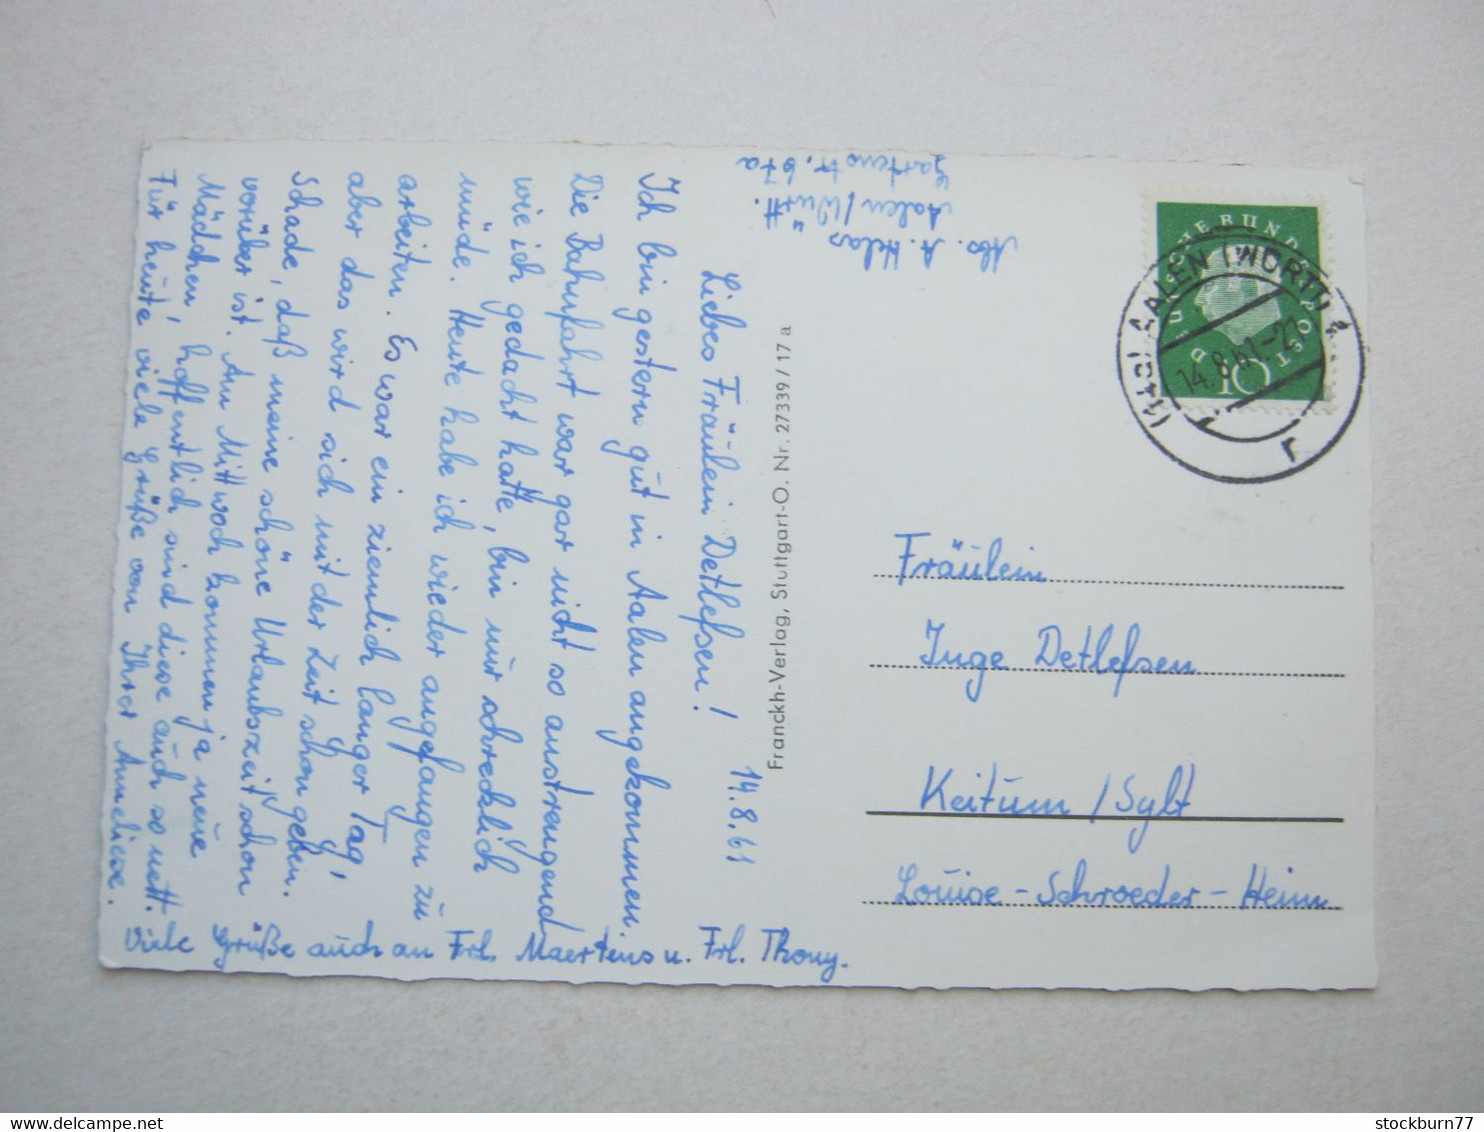 14.8.61
Liebes Fräulein Detlefsen!
Ich bin gestern gut in Aalen angekommen.
Die Bahnfahrt war gar nicht so anstrengend
wie ich gedacht hatte, bin nur schrecklich
müde. Heute habe ich wieder angefangen zu
arbeiten. Es war ein ziemlich langer Tag,
aber das wird sich mit der Zeit schon geben.
Schade, daß meine schöne Urlaubszeit schon
vorüber ist. Am Mittwoch kommen ja neue
Mädchen, hoffentlich sind diese auch so nett.
Für heute viele Grüße von Ihrer Anneliese.
Viele Grüße auch an Frl. Maertens u. Frl. Thony.
Abs. A. Klas
Aalen/Württ.
Gartenstr. 67a
Franckh-Verlag, Stuttgart-O. Nr. 27339/17a
DEUTSCHE BUNDESPOST
10
AALEN (WÜRTT)
14.8.61.-2
r
Fräulein
Inge Detlefsen
Keitum / Sylt
Louise-Schroeder-Heim
stockburn77